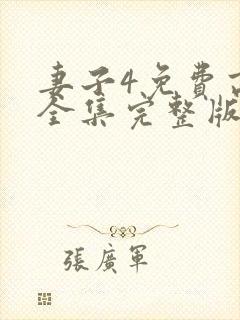 妻子4免費
全集完整版
張廣軍